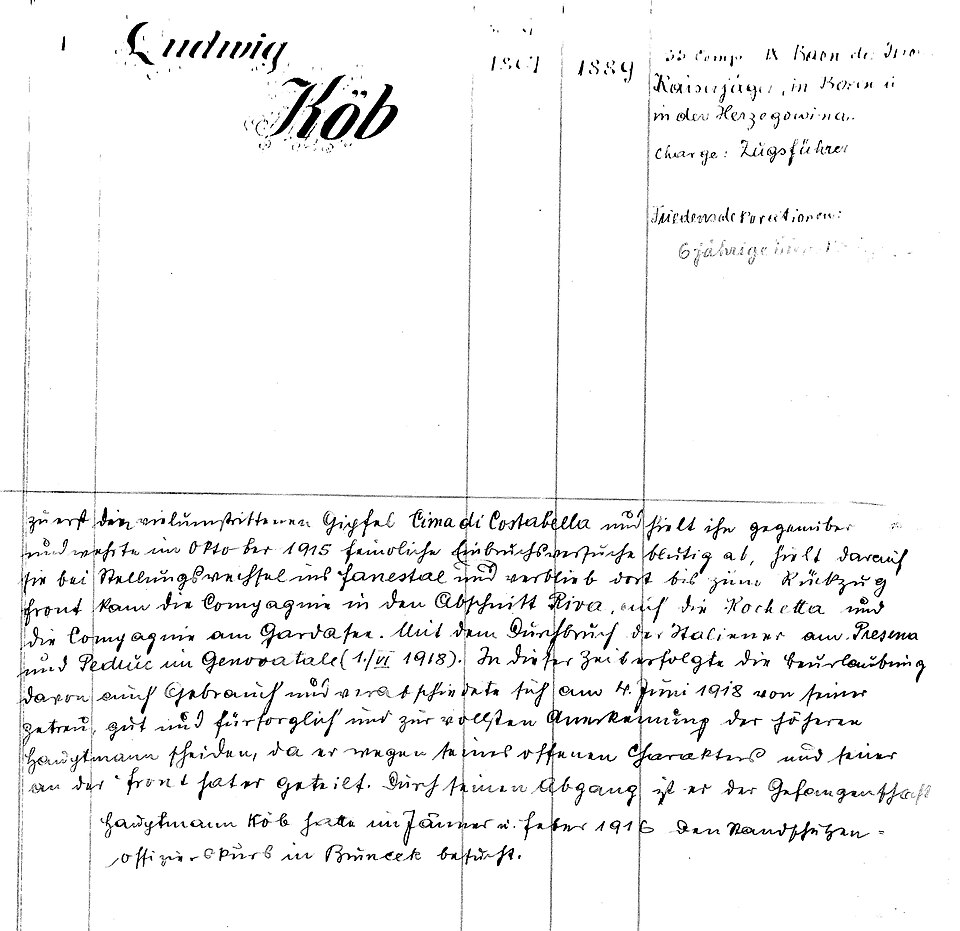 1 Ludwig Köb 1889
Comp. IX Baon der
Kaiserjäger, in Bozen u
in der Herzegowina.
Charge: Zugsführer
Friedensdekorationen:
6 jährige
zuerst den vielumstrittenen Gipfel Cima di Costabella und hielt ihn gegenüber
und wehrte im Oktober 1915 feindliche Einbruchsversuche blutig ab, hielt darauf
sie bei Stellungswechsel ins Fanestal und verblieb dort bis zum Rückzug
Front kam die Compagnie in den Abschnitt Riva, auf die Rochetta und
die Compagnie am Gardasee. Mit dem Durchbruch der Italiener am Presena
und Pedruc im Genovatale (1./VI 1918). In dieser Zeit erfolgte die Beurlaubung
davon auch Gebrauch und verabschiedete sich am 4. Juni 1918 von seiner
getreu, gut und fürsorglich und zur vollsten Anerkennung der höheren
Hauptmann scheiden, da er wegen seines offenen Charakters und seiner
an der Front hat er geteilt. Durch seinen Abgang ist er der Gefangenschaft
Hauptmann Köb hatte im Jänner u. Feber 1916 den Standschützen-
offizierskurs in Bruneck besucht.